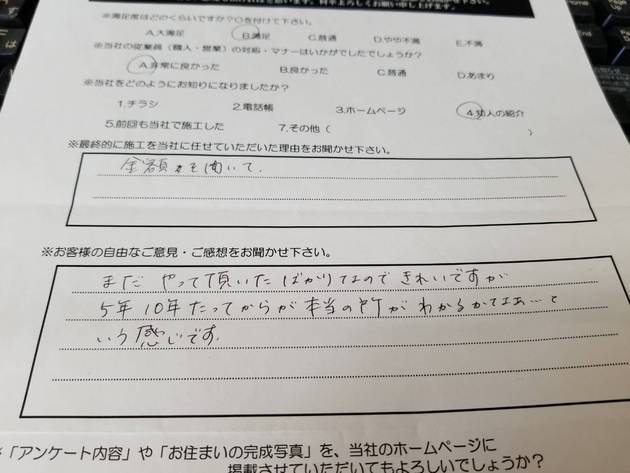 ※満足度はどのくらいですか?○を付けて下さい。
A.大満足 B.満足 C.普通 D.やや不満 E.不満
※当社の従業員(職人・営業)の対応・マナーはいかがでしたでしょうか?
A.非常に良かった B.良かった C.普通 D.あまり
※当社をどのようにお知りになりましたか?
1.チラシ 2.電話帳 3.ホームページ 4.知人の紹介
5.前回も当社で施工した 7.その他( )
※最終的に施工を当社に任せていただいた理由をお聞かせ下さい。
金額を聞いて.
※お客様の自由なご意見・ご感想をお聞かせ下さい。
まだ やって頂いたばかりなので きれいですが
5年 10年 たってからが 本当の所が わかるかなぁ…と
いう感じです.
※「アンケート内容」や「お住まいの完成写真」を、当社のホームページに
掲載させていただいてもよろしいでしょうか?